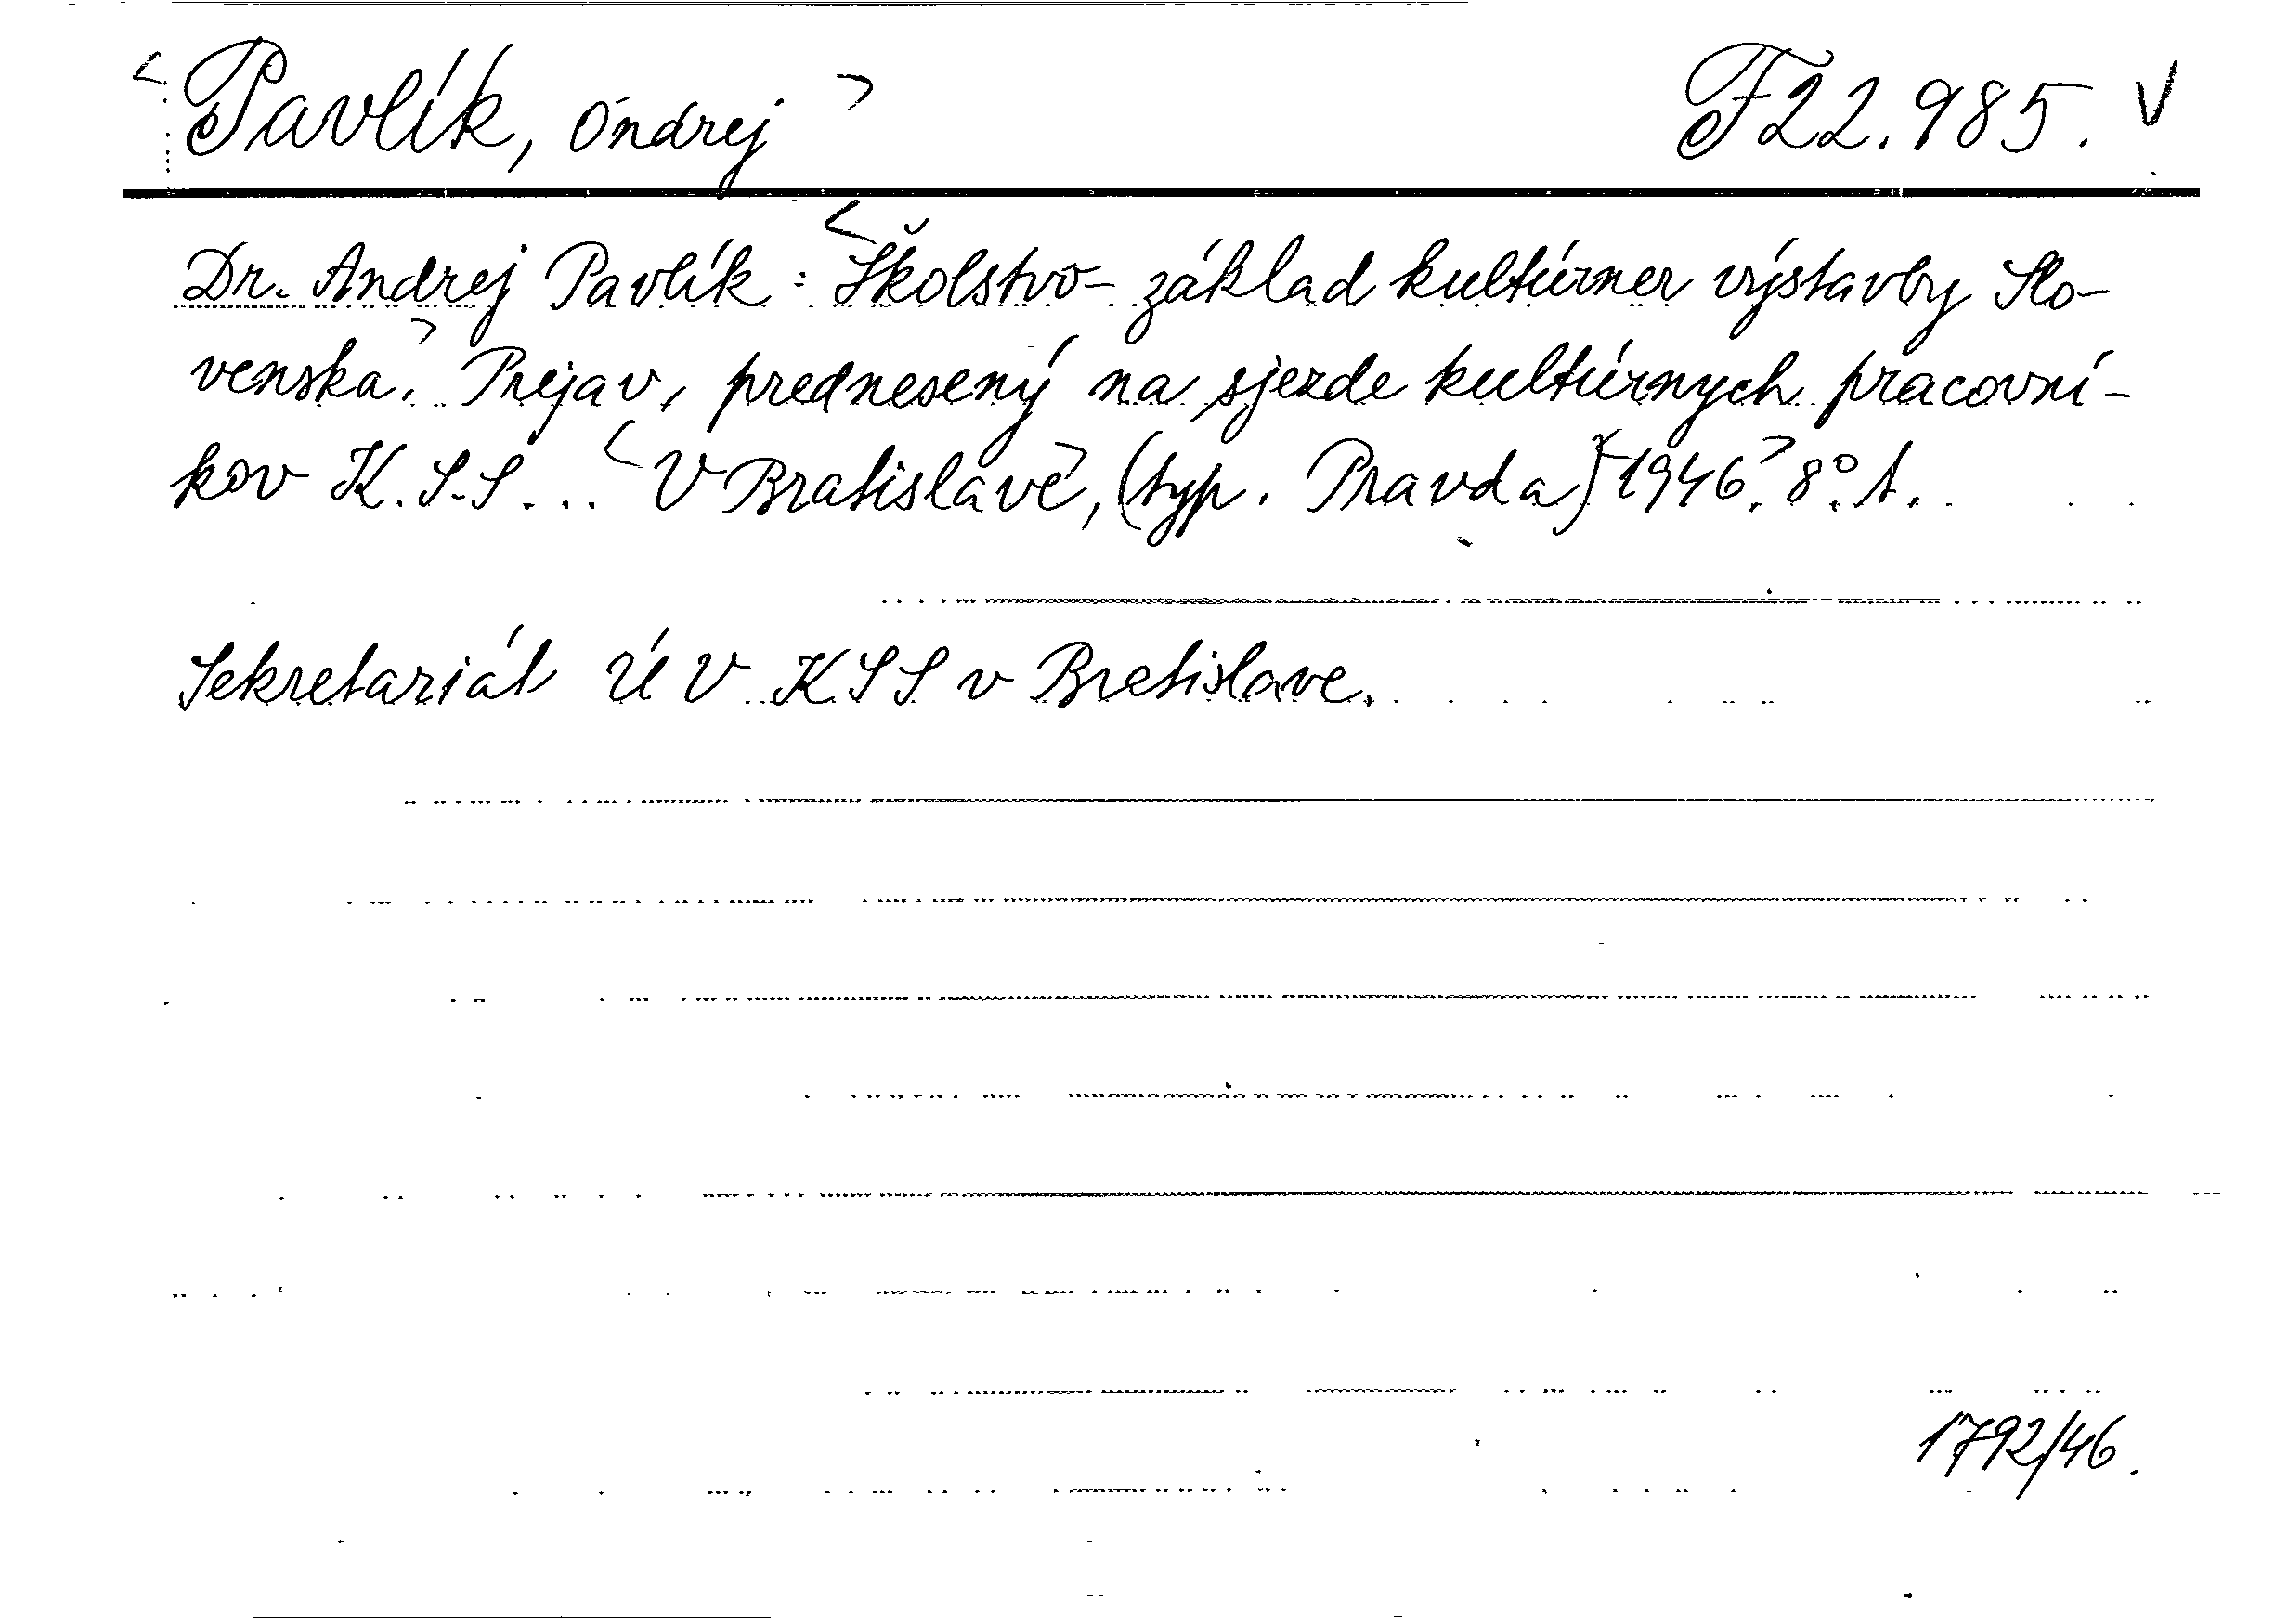 <Pavlík, Ondrej> F 22.985. V
Dr. Andrej Pavlík: <Školstvo - základ kultúrner výstavby Slo-
venska.> Prejav, prednesený na sjezde kultúrnych pracovní-
kov K.S.S... <V Bratislavě>, (typ. Pravda) <1946>. 8°. 1.
Sekretariát ÚV KSS v Bratislave.
1792/46.